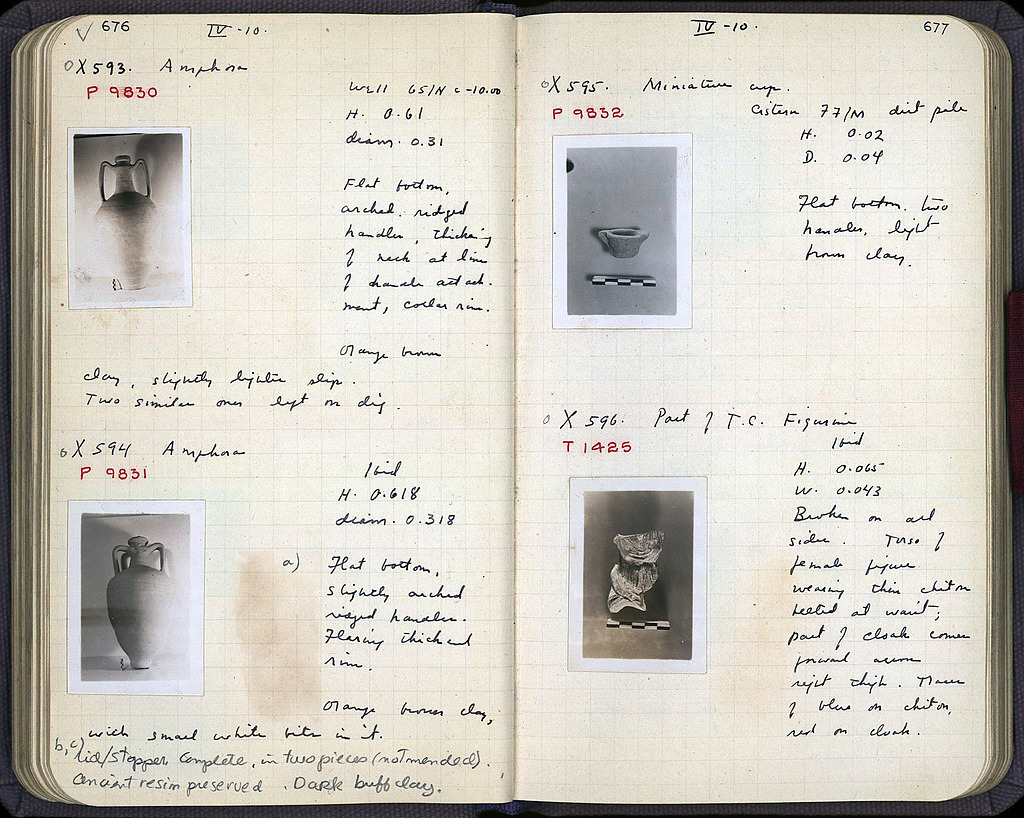 √ 676
IV -10.
OX 593. Amphora
P 9830
Well 65/N c -10.00
H. 0.61
diam. 0.31
Flat bottom,
arched. ridged
handles, thickening
of neck at line
of handle attach-
ment, collar rim.
Orange brown
clay, slightly lighter slip.
Two similar ones left on dig.
OX 594 Amphora
P 9831
Ibid
H. 0.618
diam. 0.318
a) Flat bottom,
slightly arched
ridged handles.
Flaring thickened
rim.
Orange brown clay,
with small white bits in it.
b, c) lid/stopper complete, in two pieces (not mended).
Ancient resin preserved. Dark buff clay.
IV -10.
677
OX 595. Miniature cup.
P 9832
Cistern 77/M dirt pile
H. 0.02
D. 0.04
Flat bottom. two
handles, light
brown clay.
O X 596. Part of T.C. Figurine
T 1425
Ibid
H. 0.065
W. 0.043
Broken on all
sides. Torso of
female figure
wearing thin chiton
belted at waist;
part of cloak comes
forward across
right thigh. Traces
of blue on chiton,
red on cloak.